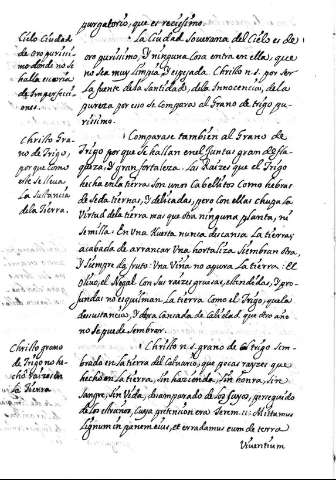 purgatorio, que es recissimo.
Cielo Ciudad
de oro purissi-
mo donde no se
halla escoria
de Imperfeccio-
nes.
La Ciudad Soverana del Cielo es de
oro purissimo, Y ninguna Cosa entra en ella, que
no sea muy limpia, Y espejada. Christo n.s. por ser
la fuente dela Santidad, dela Innocencia, dela
pureza por eso se Compara al Grano de trigo pu-
rissimo.
Christo Gra-
no de Trigo,
por que Como
este se lleua
La Sustancia
dela Tierra.
Comparase tambien al Grano de
Trigo por que se hallan en el Juntas gran de
y gran fortaleza. Las Raizes que el Trigo
hecha en la tierra son unos Cabellitos Como hebras
de seda tiernas, Y delicadas, pero con ellas chupa la
Virtud dela tierra mas que otra ninguna planta, ni
semilla. En Una Huerta nunca descansa La tierra,
acabada de arrancar Una hortaliza siembran otra,
Y siempre da fruto: Una Viña no apura la tierra: El
Oliuo, el Nogal Con sus raizes gruesas, estendidas, Y pro-
fundas no esquilman la tierra como el Trigo, quela
desustancia, Y dexa Cansada de Calidad que otro año
no se puede sembrar.
Christo grano
de Trigo no he-
chò raizes en
la Tierra
Christo n.s. grano de trigo sem-
brado en la tierra del Caluario, que pocas rayzes que
hechò en la tierra, sin hazienda, sin honra, sin
sangre, sin Vida, desamparado de los suyos, perseguido
de los estraños, Cuya pretencion era Ierem. 11: Mittamus
lignum in panem eius, et eradamus eum de terra
Viuentium